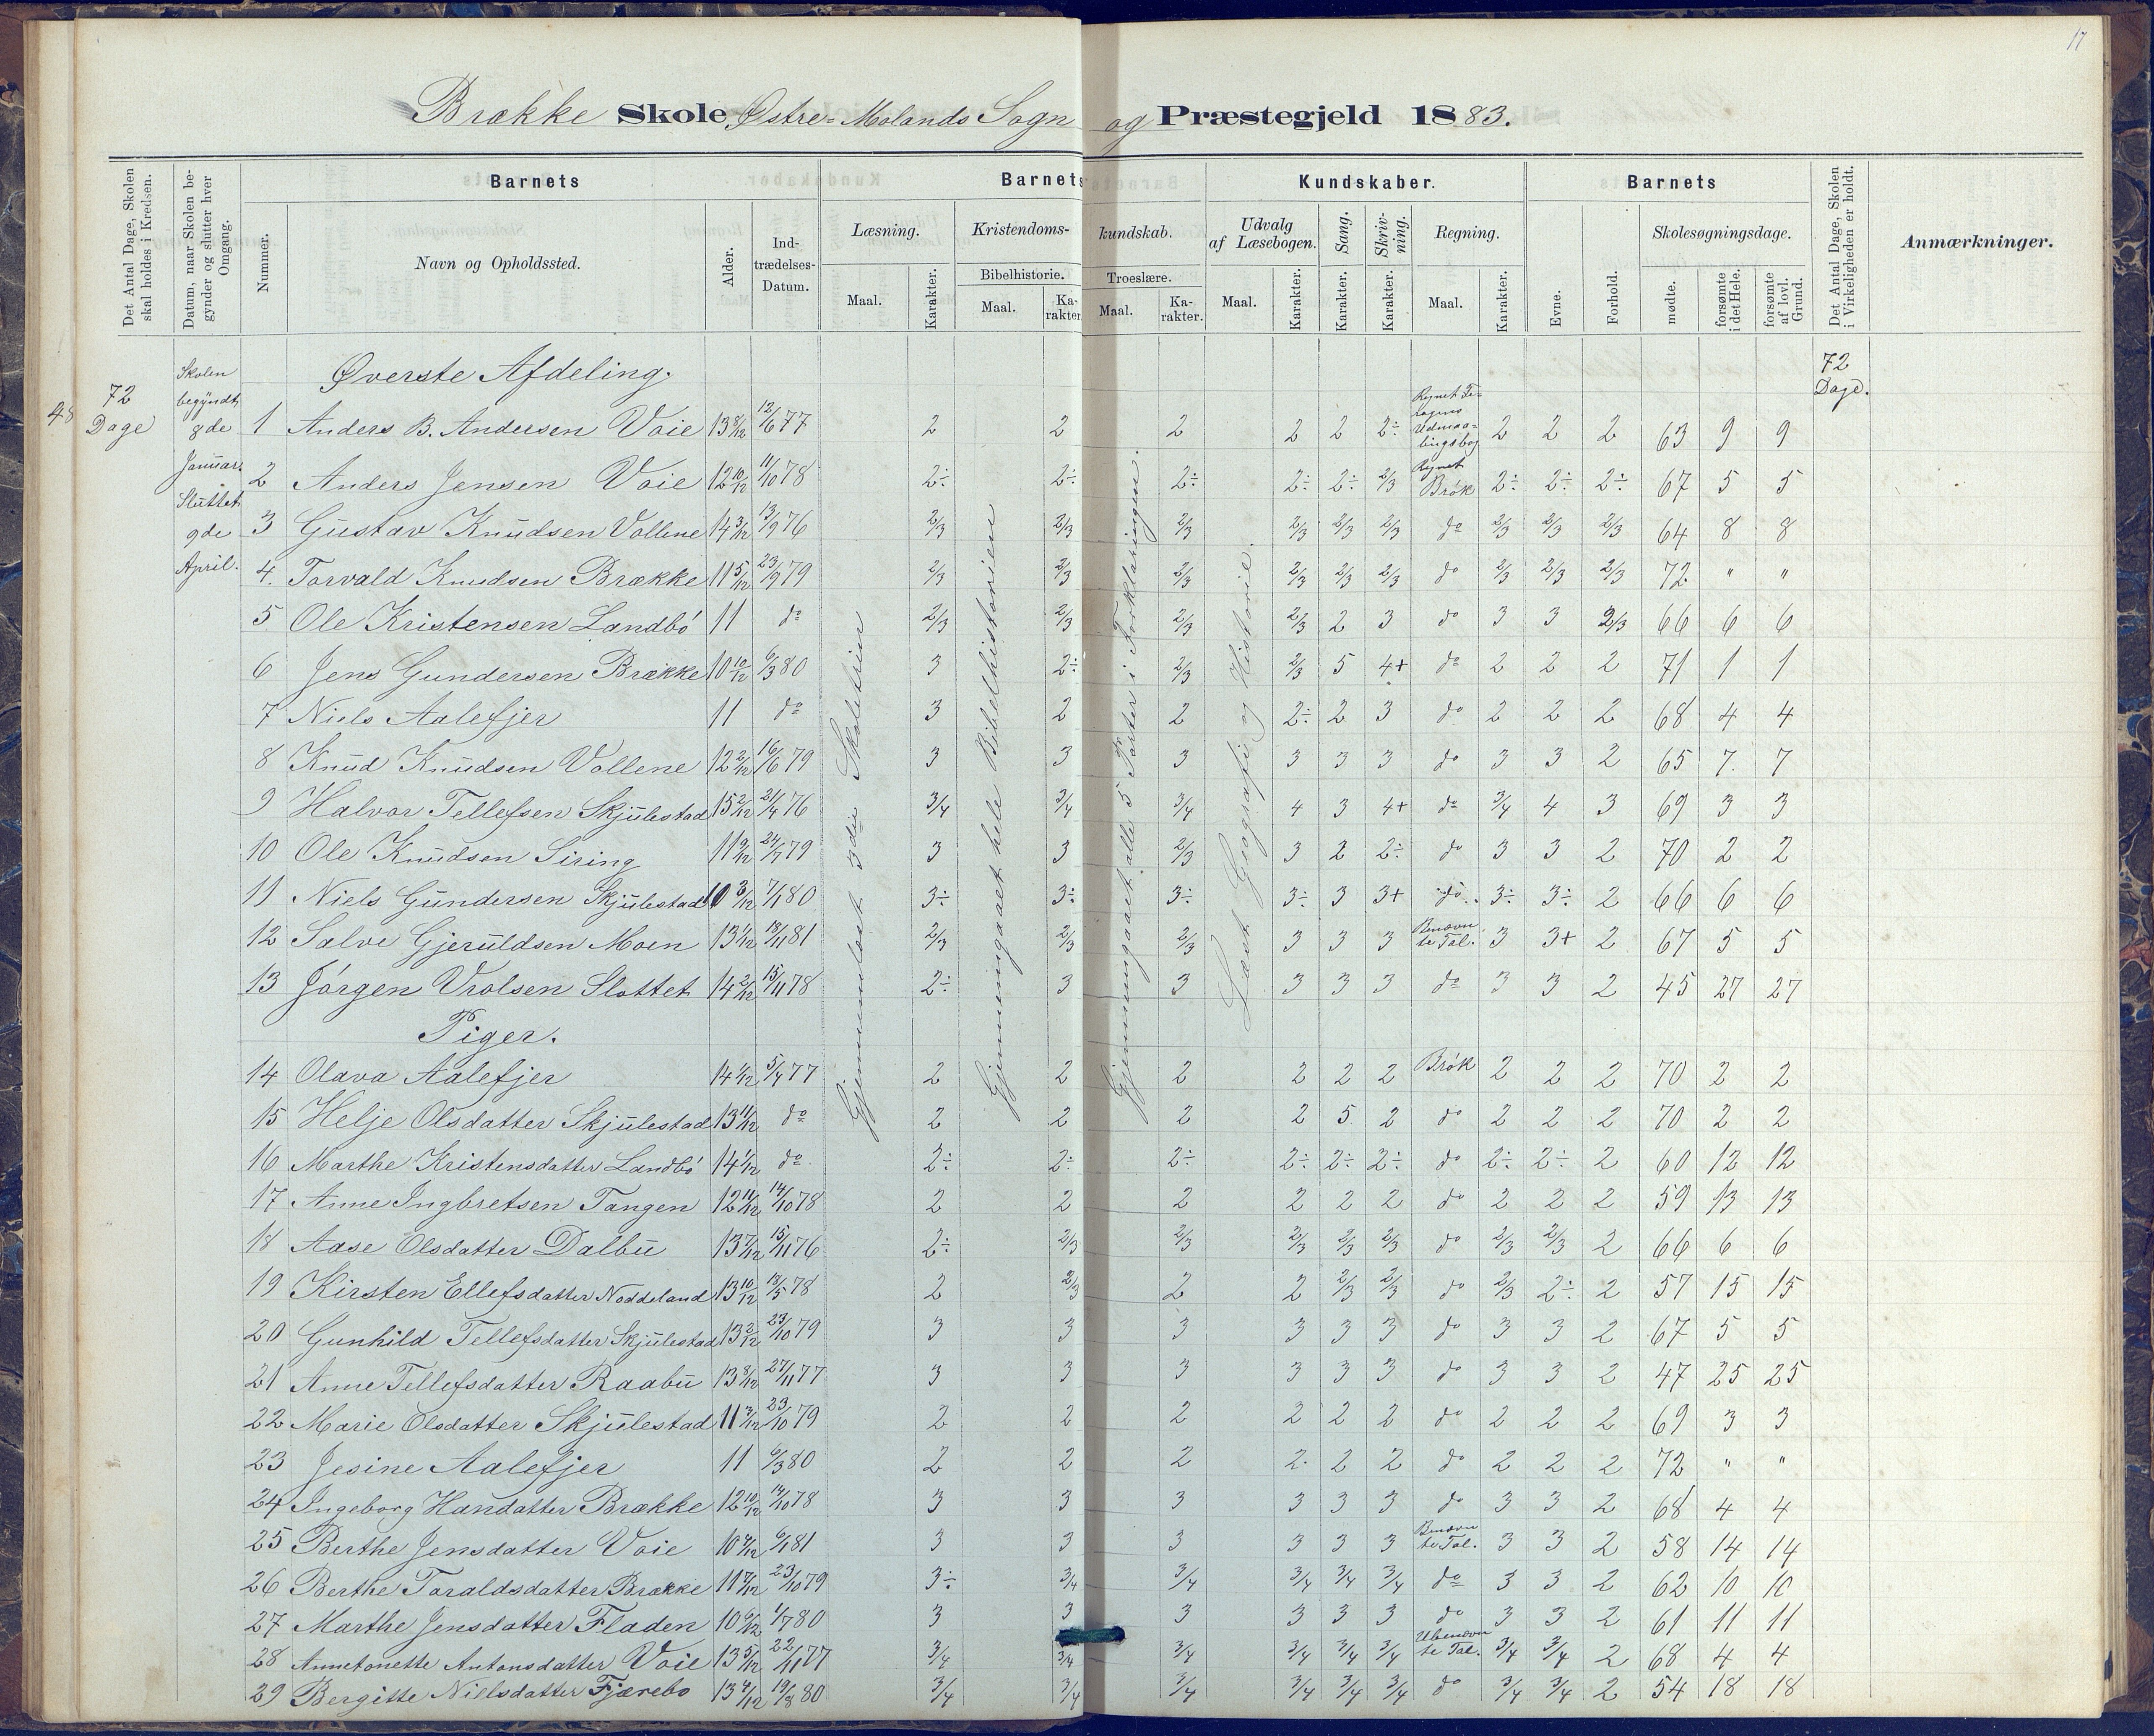 17
Brække Skole Østre-Molands Sogn og Præstegjeld 1883.
Det Antal Dage, Skolen skal holdes i Kredsen.
Datum, naar Skolen begynder og slutter hver Omgang.
Barnets
Nummer.
Navn og Opholdssted.
Alder.
Indtrædelses-Datum.
Barnets Kundskaber.
Læsning.
Maal.
Karakter.
Kristendomskundskab.
Bibelhistorie.
Maal.
Karakter.
Troeslære.
Maal.
Karakter.
Udvalg af Læsebogen.
Maal.
Karakter.
Sang.
Karakter.
Skrivning.
Karakter.
Regning.
Maal.
Karakter.
Barnets
Evne.
Forhold.
Skolesøgningsdage.
mødte.
forsømte i det Hele.
forsømte af lovl. Grund.
Det Antal Dage, Skolen i Virkeligheden er holdt.
Anmærkninger.
48
72 Dage
Skolen begyndt 8de Januar. Sluttet 9de April.
Gjennemlæst 3die Skoletrin
Gjennemgaaet hele Bibelhistorien
Gjennemgaaet alle 5 Parter i Forklaringen.
Læst Geografi og Historie.
72 Dage.
Øverste Afdeling.
1 Anders B. Andersen Voie 13 8/12 12/6 77 2 2 2 2 2 2÷ Regnet Udmaalingsbog 2 2 2 63 9 9
2 Anders Jensen Voie 12 10/12 11/10 78 2÷ 2÷ 2÷ 2÷ 2÷ 2/3 Regnet Brök 2÷ 2÷ 2÷ 67 5 5
3 Gustav Knudsen Vollene 14 3/12 13/9 76 2/3 2/3 2/3 2/3 2/3 2/3 do 2/3 2/3 2/3 64 8 8
4. Torvald Knudsen Brække 11 5/12 23/9 79 2/3 2/3 2/3 2/3 2/3 2/3 do 2/3 2/3 2/3 72 " "
5 Ole Kristensen Landbö 11 do 2/3 2/3 2/3 2/3 2 3 do 3 3 2/3 66 6 6
6 Jens Gundersen Brække 10 10/12 6/3 80 3 2÷ 2/3 2/3 5 4+ do 2 2 2 71 1 1
7 Niels Aalefjer 11 do 3 2 2 2÷ 2 3 do 2 2 2 68 4 4
8 Knud Knudsen Vollene 12 2/12 16/6 79 3 3 3 3 3 3 do 3 3 2 65 7. 7
9 Halvor Tellefsen Skjulestad 15 2/12 21/4 76 3/4 3/4 3/4 4 3 4+ do 3/4 4 3 69 3 3
10 Ole Knudsen Siring 11 9/12 24/7 79 3 3 2/3 3 2 2÷ do 3 3 2 70 2 2
11 Niels Gundersen Skjulestad 10 3/12 7/1 80 3÷ 3÷ 3÷ 3÷ 3 3+ do 3÷ 3÷ 2 66 6 6
12 Salve Gjeruldsen Moen 13 1/12 18/11 81 2/3 2/3 2/3 3 3 3 Benævnte Tal. 3 3+ 2 67 5 5
13 Jörgen Vrolsen Slottet 14 2/12 15/11 78 2÷ 3 3 3 3 3 do 3 3 2 45 27 27
Piger.
14 Olava Aalefjer 14 1/12 5/4 77 2 2 2 2 2 2 Brök 2 2 2 70 2 2
15 Helje Olsdatter Skjulestad 13 11/12 do 2 2 2 2 5 2 do 2 2 2 70 2 2
16 Marthe Kristensdatter Landbö 14 1/12 do 2÷ 2÷ 2÷ 2÷ 2÷ 2÷ do 2÷ 2÷ 2 60 12 12
17 Anne Ingbretsen Tangen 12 11/12 14/10 78 2 2 2 2 2 2 do 2 2 2 59 13 13
18 Aase Olsdatter Dalbu 13 7/12 15/11 76 2÷ 2/3 2/3 2/3 2/3 2/3 do 2/3 2/3 2 66 6 6
19 Kirsten Ellefsdatter Noddeland 13 10/12 18/5 78 2 2/3 2 2 2/3 2/3 do 2/3 2÷ 2 57 15 15
20 Gunhild Tellefsdatter Skjulestad 13 2/12 23/10 79 3 3 3 3 3 3 do 3 3 2 67 5 5
21 Anne Tellefsdatter Raabu 13 8/12 27/11 77 3 3 3 3 3 3 do 3 3 2 47 25 25
22 Marie Olsdatter Skjulestad 11 3/12 23/10 79 2 2 2 2 2 2 do 2 2 2 69 3 3
23 Jesine Aalefjer 11 6/3 80 2 2 2 2. 2 2 do 2 2 2 72 " "
24 Ingeborg Hansdatter Brække 12 10/12 14/10 78 3 3 3 3 3 3 do 3 3 2 68 4 4
25 Berthe Jensdatter Voie 10 4/12 6/1 81 3 3 3 3 3 3 Benævnte Tal. 3 3 2 58 14 14
26 Berthe Taraldsdatter Brække 11 7/12 23/10 79 3÷ 3/4 3/4 3/4 3/4 3/4 do 3 3 2 62 10 10
27 Marthe Jensdatter Fladen 10 6/12 1/7 80 3 3 3 3 3 3 do 3 3 2 61 11 11
28 Annetonette Antonsdatter Voie 13 5/12 22/11 77 3/4 3/4 3/4 3/4 3/4 3/4 Ubenævnte Tal. 3/4 3/4 2 68 4 4
29 Bergitte Nielsdatter Fjærebo 13 4/12 19/8 80 3/4 3/4 3/4 3/4 3/4 3/4 do 3/4 3/4 2 54 18 18